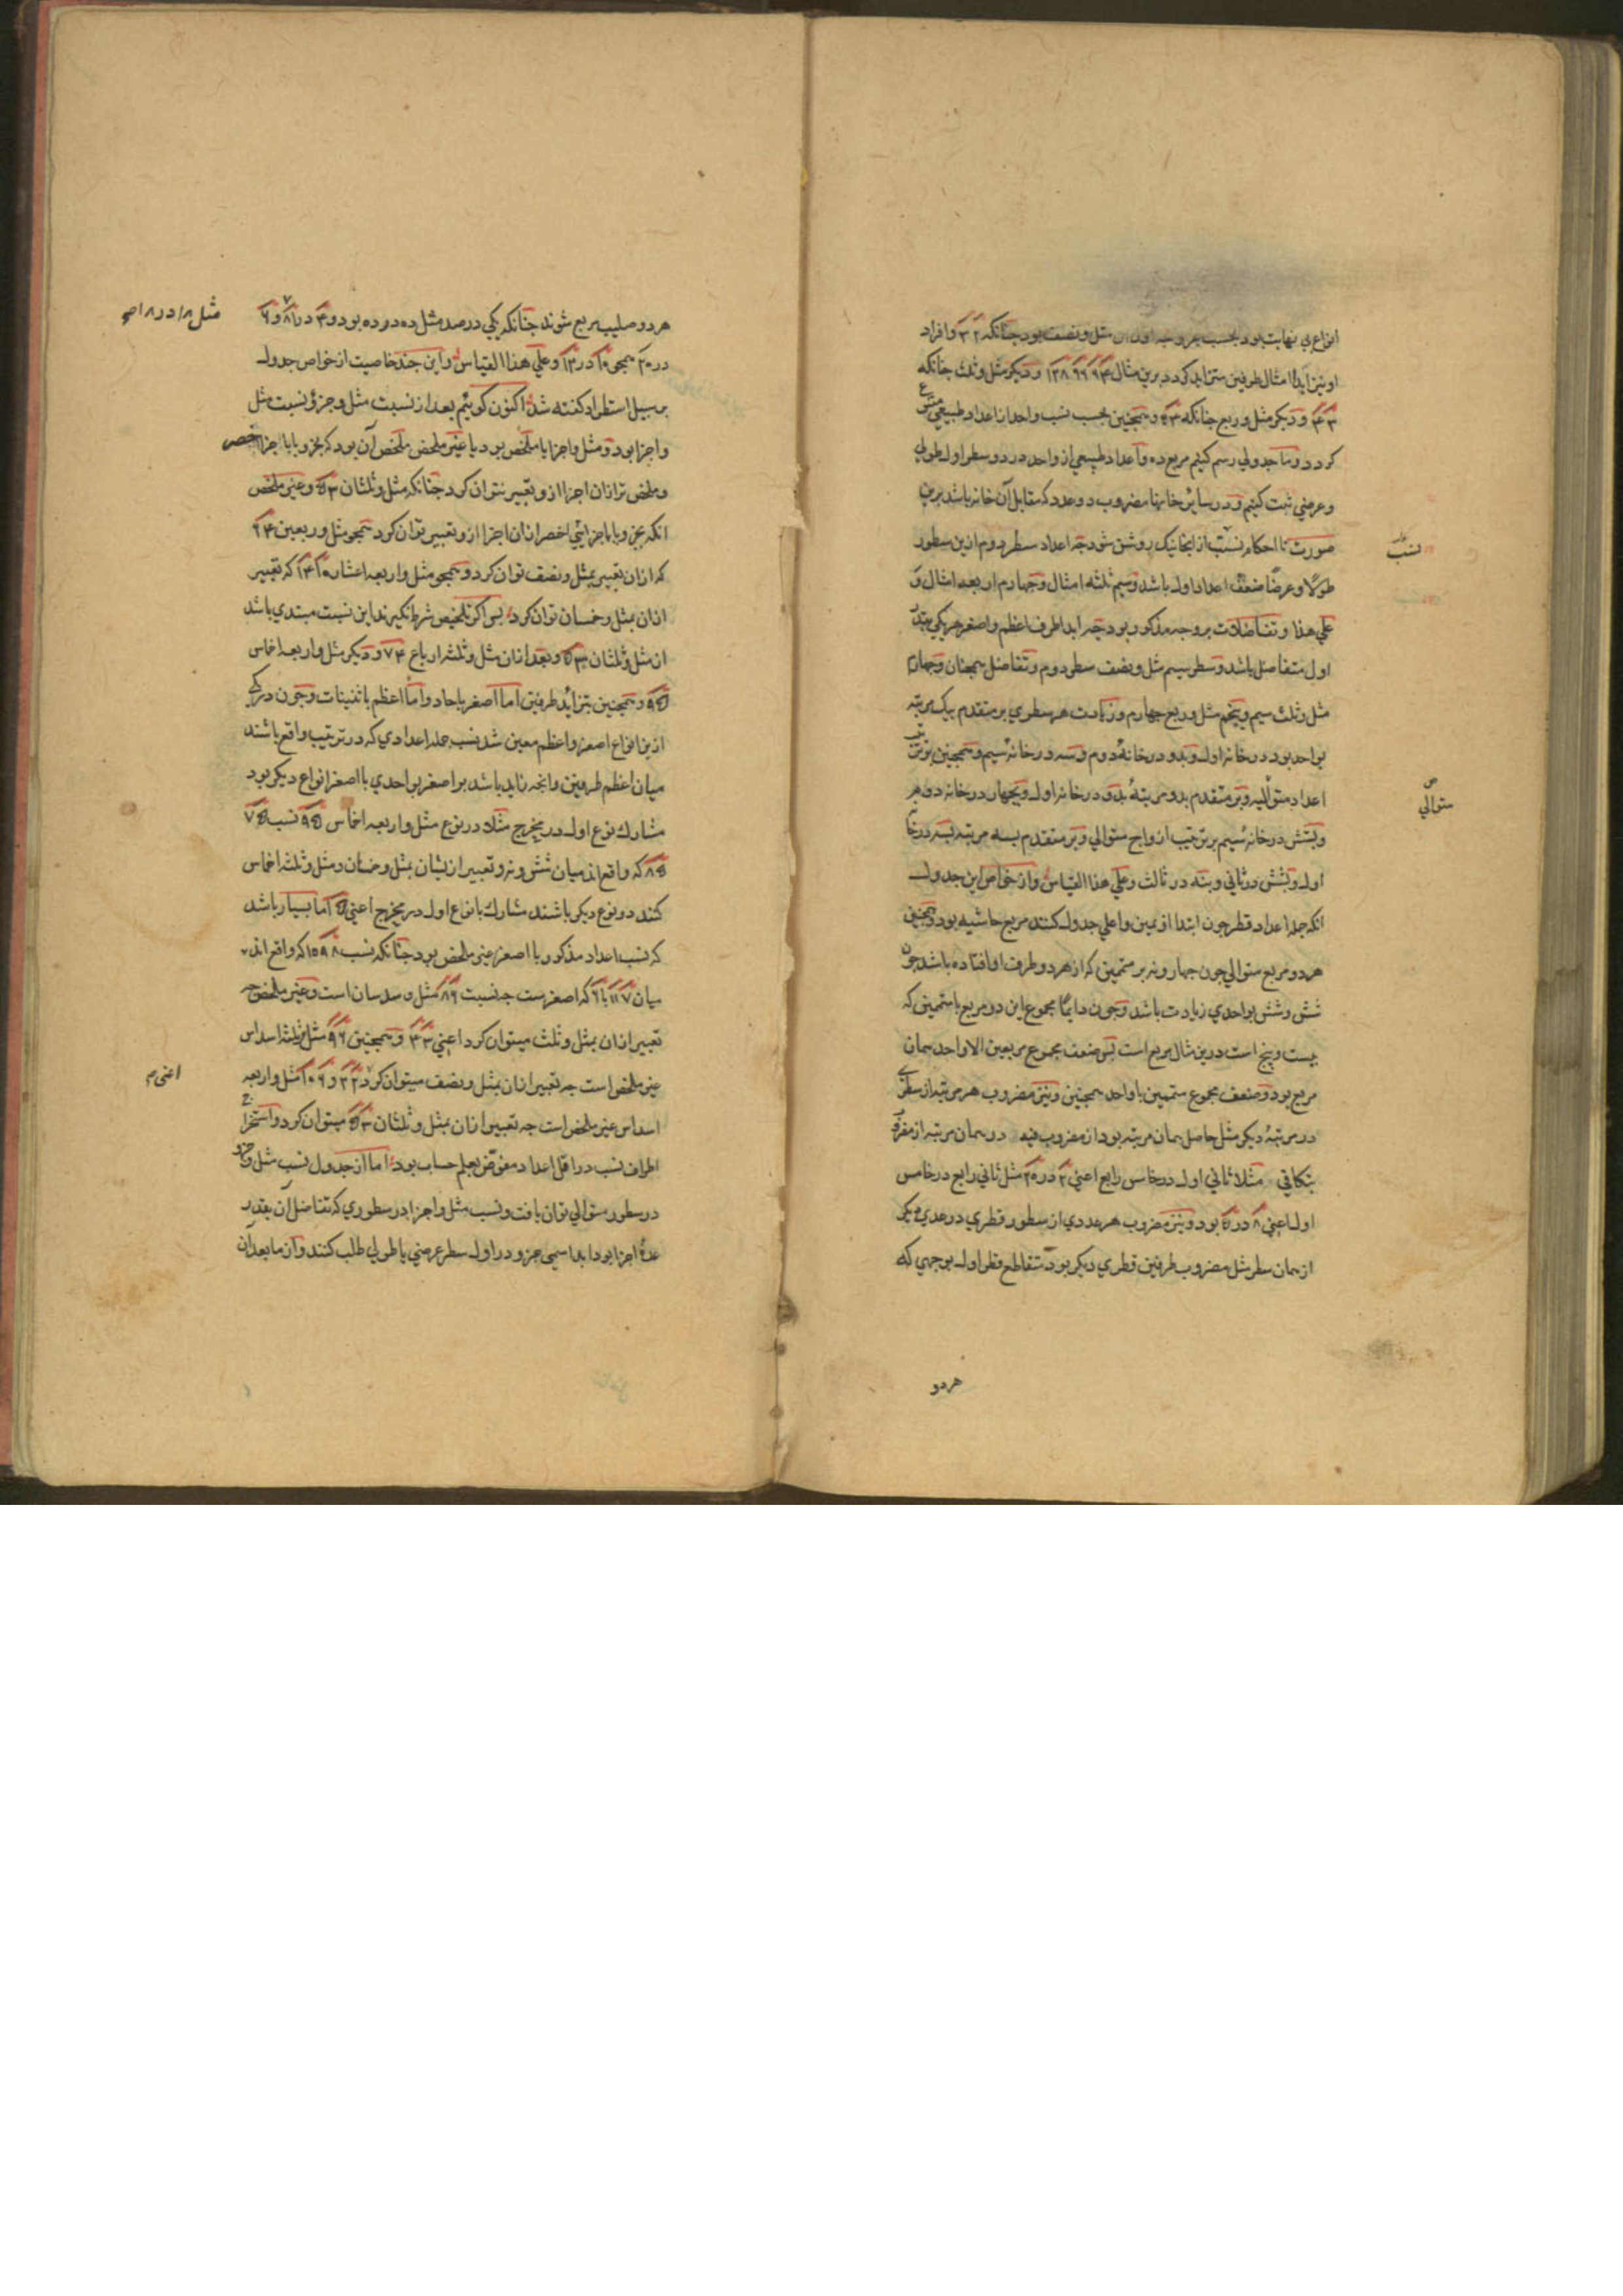 انواع بی نهایت بود بحسب هر وجه اول آن مثل و نصف بود چنانکه ۲ ۳ و افراد
او نیز ابدا امثال طرفین متزاید کردد برین مثال ۴ ۶ ۶ ۹ ۸ ۱۲ و دیکر مثل و ثلث چنانکه
۳ ۴ و دیکر مثل و ربع چنانکه ۴ ۵ و همچنین بحسب نسب واحد از اعداد طبیعی متنوع
کردد و ما جدولی رسم کنیم مربع ده و اعداد طبیعی از واحد در دو سطر اول طولی
و عرضی ثبت کنیم و در سایر خانها مضروب دو عدد که مقابل آن خانه باشد برین
صورت تا احکام نسب از انجا نیک روشن شود چه اعداد سطر دوم ازین سطور
نسب
طولا و عرضا ضعف اعداد اول باشد و سیم ثلثه امثال و چهارم اربعه امثال و
علی هذا و تفاضلات بر وجه مذکور بود چه ابدا طرف اعظم و اصغر هر یکی بقدر
اول متفاضل باشد و سطر سیم مثل و نصف سطر دوم و تفاضل همچنان و چهارم
مثل و ثلث سیم و پنجم مثل و ربع چهارم و زیادت هر سطری بر متقدم بیک مرتبه
بواحد بود در خانه اول و بدو در خانهٔ دوم و بسه در خانهٔ سیم و همچنین بر ترتیب
اعداد متوالیه و بر متقدم بدو مرتبهٔ بدو در خانه اول و بچهار در خانه دوم
متوالی
و بشش در خانهٔ سیم بر ترتیب ازواج متوالی و بر متقدم بسه مرتبه بسه در خانه
اول و بشش در ثانی و بنه در ثالث و علی هذا القیاس و از خواص این جدول
انکه جمله اعداد قطر چون ابتدا از یمین و اعلی جدول کنند مربع حاشیه بود و همچنین
هر دو مربع متوالی چون چهار و نه بر متممین که از هر دو طرف او افتاده باشد چون
شش و شش بواحدی زیادت باشد و چون دایما مجموع این دو مربع با متممین که
بیست و پنج است درین مثال مربع است پس ضعف مجموع مربعین الا واحد همان
مربع بود و ضعف مجموع متممین با واحد همچنین و نیز مضروب هر مرتبه از سطری
در مرتبهٔ دیکر مثل حاصل همان مرتبه بود از مضروب فیه در همان مرتبه از مضروب
بتکافی مثلا ثانی اول در خامس رابع اعنی ۲ در ۲۰ مثل ثانی رابع در خامس
اول اعنی ۸ در ۵ بود و نیز مضروب هر عددی از سطور قطری در عددی دیکر
از همان سطر مثل مضروب طرفین قطری دیکر بود متقاطع قطر اول بوجهی که
هر دو
هر دو صلیب مربع شوند چنانکه یکی در صد مثل ده در ده بود و ۴ در ۱۸ و ۶
مثل ۱۸ در ۸
در ۲۰ همچو ۱۰ در ۱۲ و علی هذا القیاس و این چند خاصیت از خواص جدول
بر سبیل استطراد کفته شد اکنون کوییم بعد از نسبت مثل و جزو نسبت مثل
و اجزا بود و مثل و اجزا یا ملخص بود یا غیر ملخص ملخص آن بود که بجزو یا باجزا اخصر
و ملخص تر ازان اجزا ازو تعبیر نتوان کرد چنانکه مثل و ثلثان ۳ ۵ و غیر ملخص
انکه بجزو یا باجزایی اخصر ازان اجزا ازو تعبیر توان کرد همچو مثل و ربعین ۴ ۶
که ازان تعبیر بمثل و نصف توان کرد و همچو مثل و اربعه اعشار ۱۰ ۱۴ که تعبیر
ازان بمثل و خمسان توان کرد پس اکر تلخیص شرط نکیرند این نسبت مبتدی باشد
از مثل و ثلثان ۳ ۵ و بعد ازان مثل و ثلثه ارباع ۴ ۷ و دیکر مثل و اربعه اخماس
۵ ۹ و همچنین بتزاید طرفین اما اصغر باحاد و اما اعظم باثنینات و چون در یکی
ازین انواع اصغر و اعظم معین شد نسب جمله اعدادی که در ترتیب واقع باشند
میان اعظم طرفین و انچه زاید باشد بر اصغر بواحدی با اصغر انواع دیکر بود
مشارک نوع اول در مخرج مثلا در نوع مثل و اربعه اخماس ۵ ۹ نسب ۵ ۷
۵ ۸ که واقع اند میان شش و نه و تعبیر ازیشان بمثل و خمسان و مثل و ثلثه اخماس
کنند دو نوع دیکر باشند مشارک با نوع اول در مخرج اعنی ۵ اما بسیار باشد
که نسب اعداد مذکور با اصغر غیر ملخص بود چنانکه نسب ۸ ۹ ۱۰ که واقع اند
میان ۷ ۱۱ با ۶ که اصغرست چه نسبت ۶ ۸ مثل و سدسان است و غیر ملخص چه
تعبیر ازان بمثل و ثلث میتوان کرد اعنی ۳ ۴ و همچنین ۶ ۹ مثل و ثلثه اسداس
غیر ملخص است چه تعبیر ازان بمثل و نصف میتوان کرد ۲ ۳ و ۶ ۱۰ مثل و اربعه
اعنی م
اسداس غیر ملخص است چه تعبیر ازان بمثل و ثلثان ۳ ۵ میتوان کرد و استخراج
اطراف نسب در اقل اعداد مفوض بعلم حساب بود اما از جدول نسب مثل و جزو
در سطور متوالی توان یافت و نسب مثل و اجزا در سطوری که تفاضل آن بقدر
عدهٔ اجزا بود ابدا سمی جزو در اول سطر عرضی یا طولی طلب کنند و از ما بعد آن